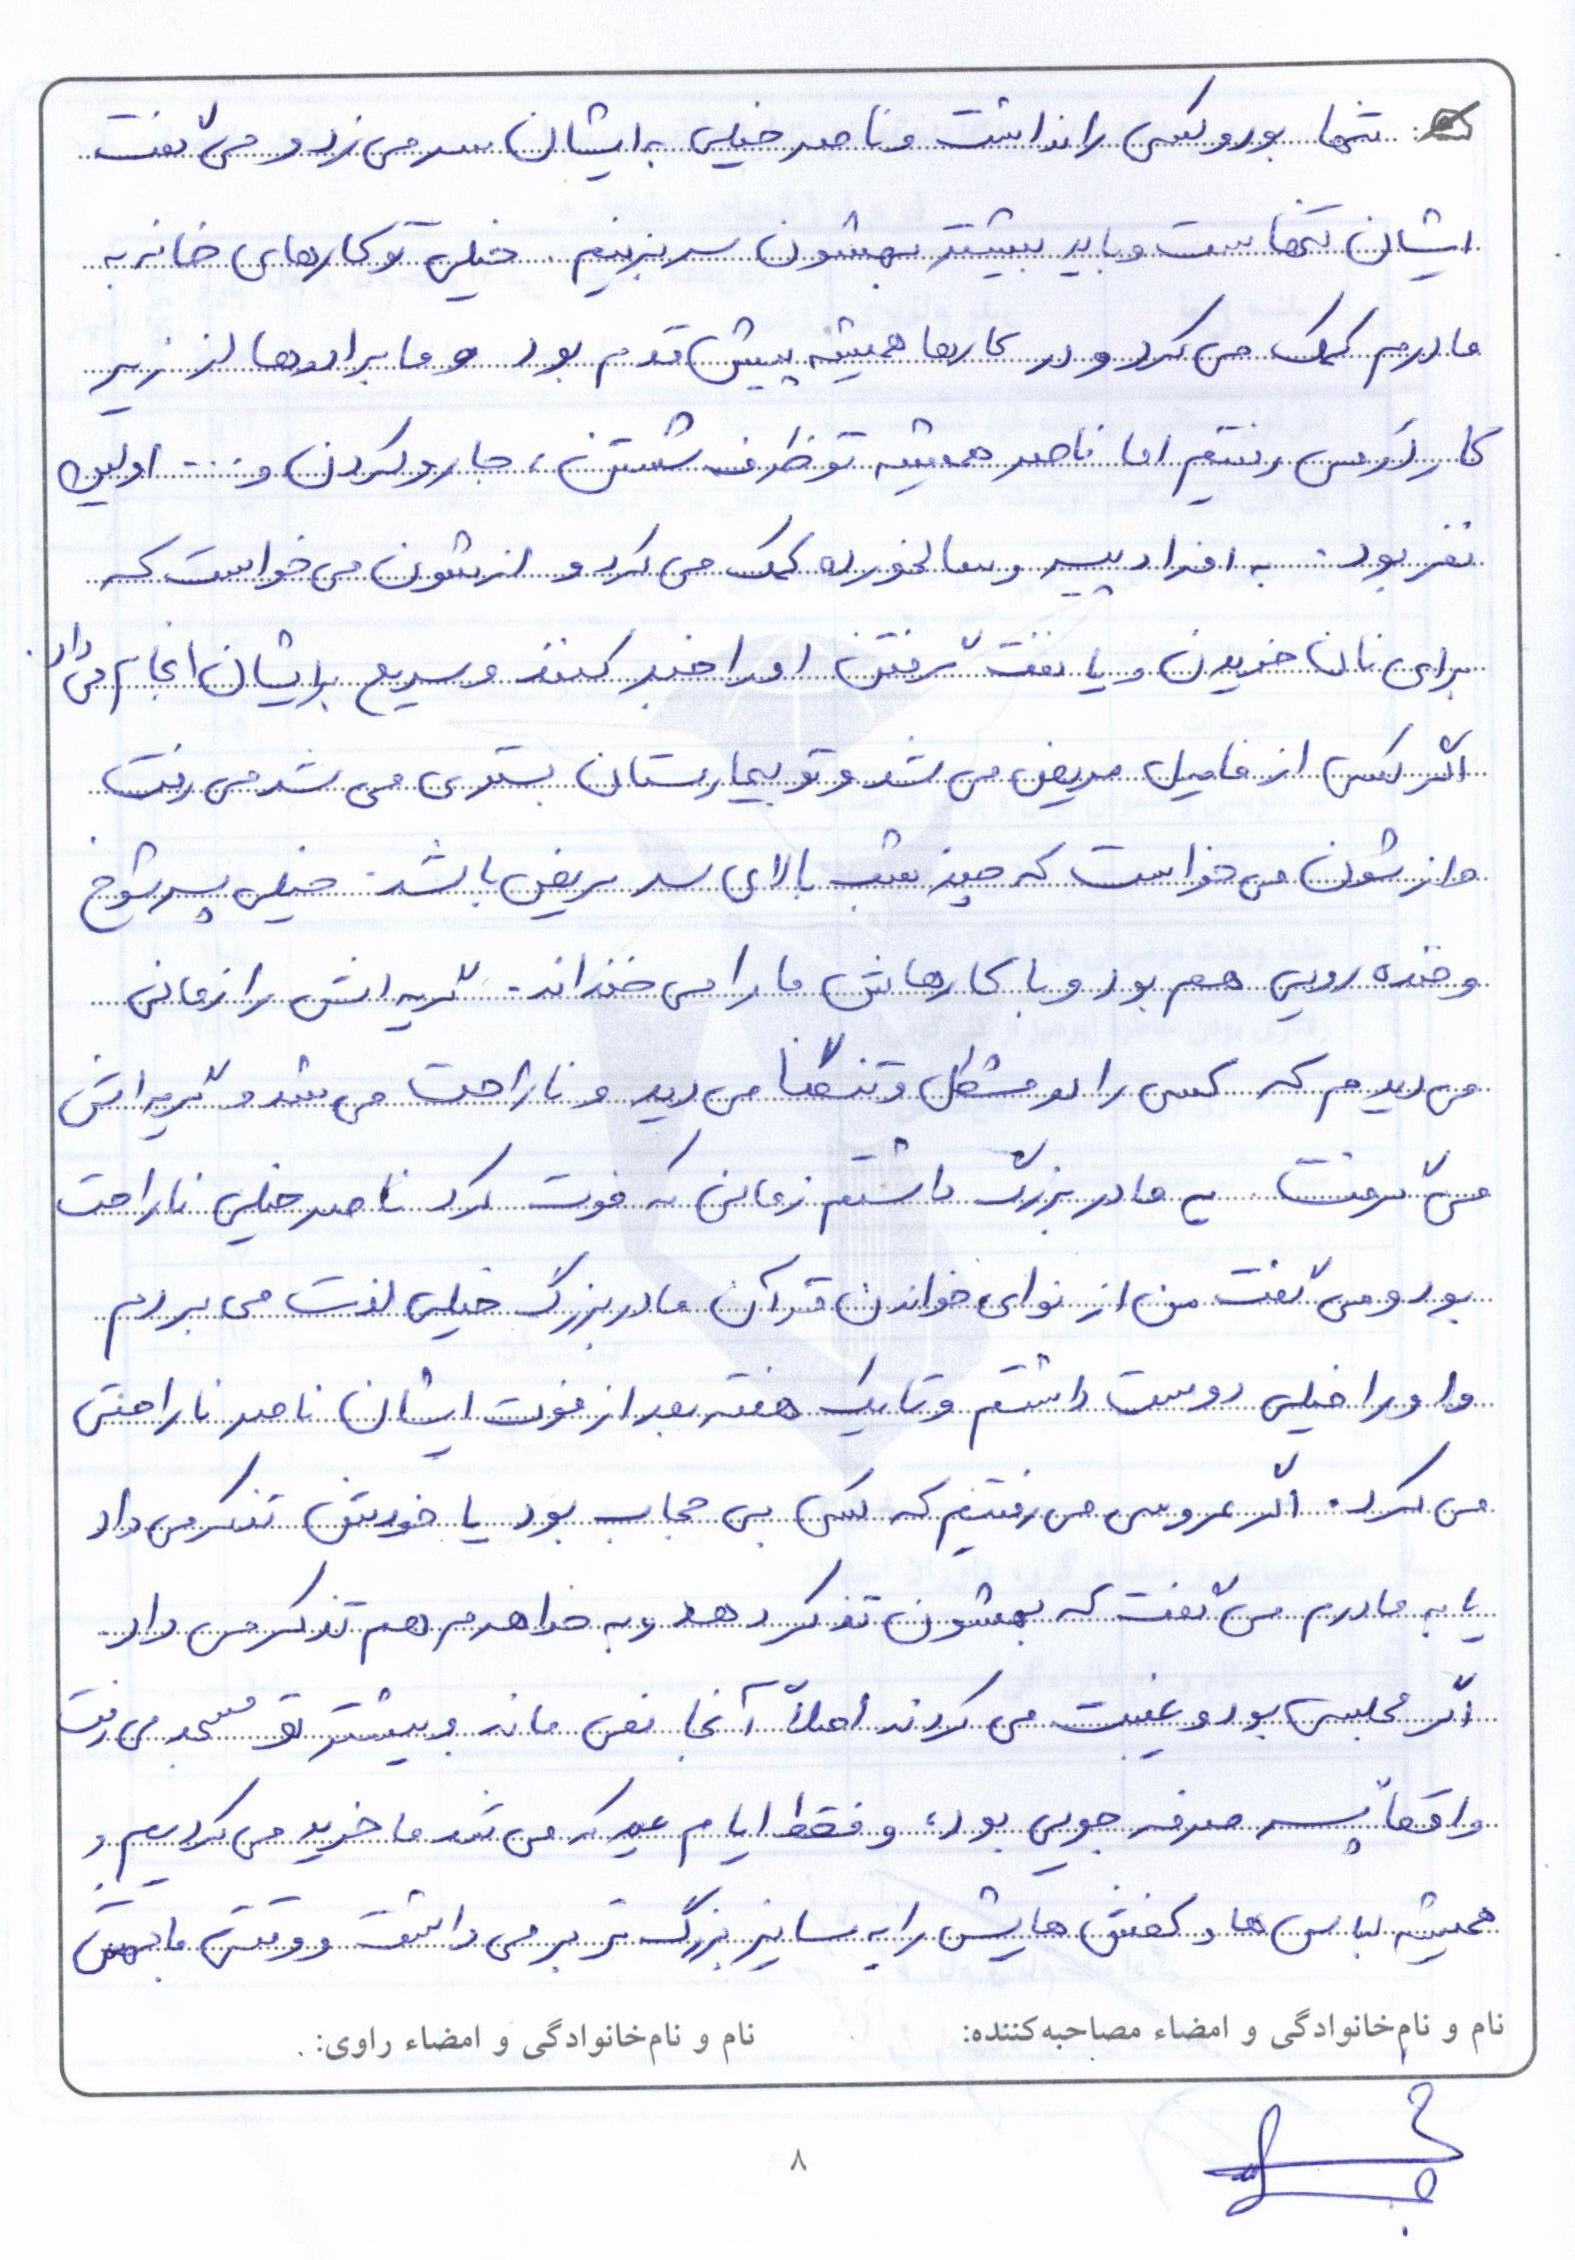 تنها بود و کسی را نداشت و ناصر خیلی به ایشان سر می زد و می گفت
ایشان تنهاست و باید بیشتر بهشون سر بزنیم. خیلی تو کارهای خانه به
مادرم کمک می کرد و در کارها همیشه پیش قدم بود و ما برادرها از زیر
کار در می رفتیم اما ناصر همیشه تو ظرف شستن، جارو کردن و ... اولین
نفر بود. به افراد پیر و سالخورده کمک می کرد و ازشون می خواست که
برای نان خریدن و یا نفت گرفتن او را خبر کنند و سریع برایشان انجام می داد.
اگر کسی از فامیل مریض می شد و تو بیمارستان بستری می شد می رفت
و ازشون می خواست که چند شب بالای سر مریض باشد. خیلی پسر شوخ
و خنده رویی هم بود و با کارهاش ما را می خنداند. گریه اش را زمانی
می دیدم که کسی را تو مشکل و تنگنا می دید و ناراحت می شد و گریه اش
می گرفت. یه مادر بزرگ داشتم زمانی که فوت کرد ناصر خیلی ناراحت
بود و می گفت من از نوای خواندن قرآن مادر بزرگ خیلی لذت می بردم
و او را خیلی دوست داشتم و تا یک هفته بعد از فوت ایشان ناصر ناراحتی
می کرد. اگر عروسی می رفتیم که کسی بی حجاب بود یا خودش تذکر می داد
یا به مادرم می گفت که بهشون تذکر دهد و به خواهرم هم تذکر می داد.
اگر مجلسی بود و غیبت می کردند اصلاً آنجا نمی ماند و بیشتر تو مسجد می رفت
واقعاً پسر صرفه جویی بود، و فقط ایام عید که می شد ما خرید می کردیم و
همیشه لباس ها و کفش هایش را یه سایز بزرگ تر بر می داشت و وقتی ما بهش
نام و نام‌خانوادگی و امضاء مصاحبه‌کننده: نام و نام‌خانوادگی و امضاء راوی:
۸